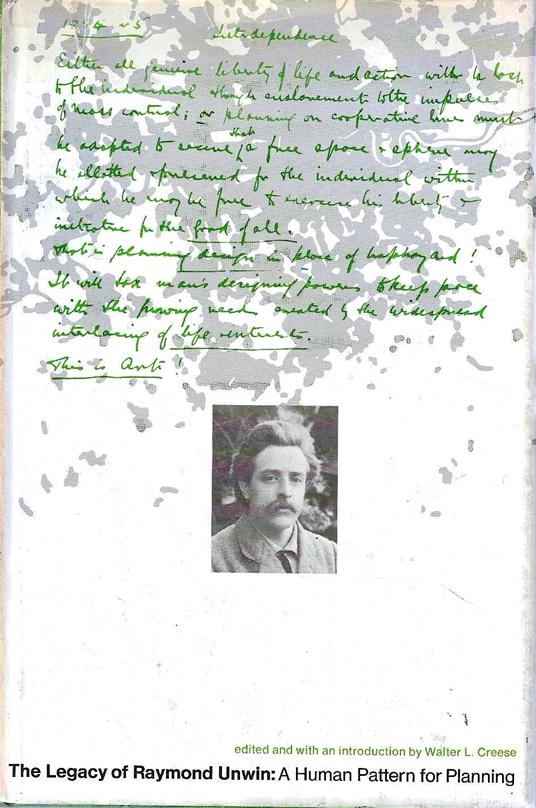 Interdependence
Either all genuine liberty of life and action will be lost
to the individual through enslavement to the impulses
of mass control; or planning on cooperative lines must
be adapted to secure that a free space & sphere may
be allotted & preserved for the individual within
which he may be free to exercise his liberty &
initiative for the good of all.
that is planning design in place of haphazard!
It will tax man's designing powers to keep pace
with the growing needs created by the widespread
interlacing of life interests.
This is Art!
edited and with an introduction by Walter L. Creese
The Legacy of Raymond Unwin: A Human Pattern for Planning